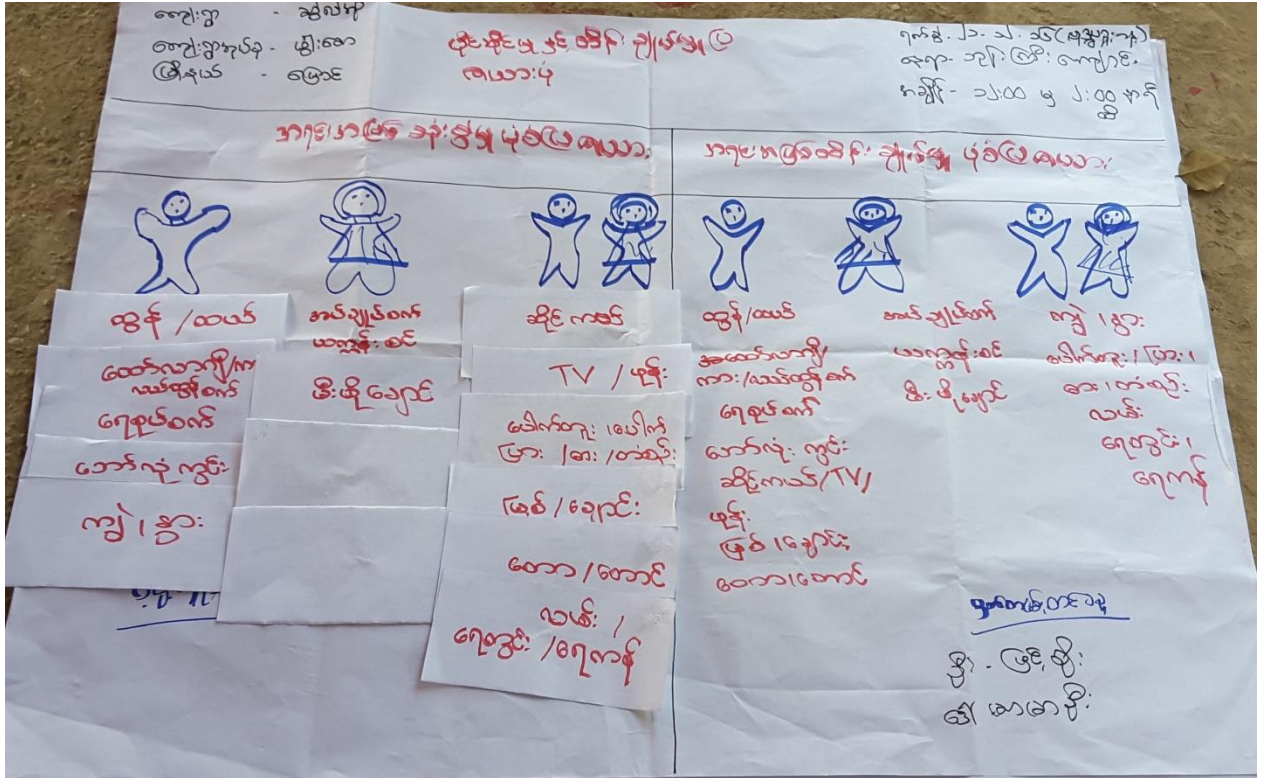 ကျေးရွာ -
ကျေးရွာအုပ်စု -
မြို့နယ် - မြောင်
ပိုင်ဆိုင်မှု နှင့် ထိန်းချုပ်မှုပြ
ဇယားပုံ
နေရာ - ဘုန်းကြီးကျောင်း
အချိန် - ၁၂:၀၀ မှ ၂:၀၀ ထိ
အရင်းအမြစ် သုံးစွဲမှု ပုံစံပြ ဇယား
အရင်းအမြစ်ထိန်းချုပ်မှု ပုံစံပြ ဇယား
ထွန် / ထယ်
ထော်လာဂျီ/ကား
လယ်ထွန်စက်
ရေစုပ်စက်
ဘော်လုံးကွင်း
ကျွဲ ၊ နွား
အပ်ချုပ်စက်
ယက္ကန်းစင်
မီးဖိုချောင်
ဆိုင်ကယ်
TV / ဖုန်း
ပေါက်တူး ၊ ပေါက်
ပြား / ဓား / တံစဉ်း
မြစ် / ချောင်း
တော / တောင်
လယ်း /
ရေတွင်း / ရေကန်
ထွန် / ထယ်
အထော်လာဂျီ/
ကား/လယ်ထွန်စက်
ရေစုပ်စက်
ဘော်လုံးကွင်း
ဆိုင်ကယ်/TV/
ဖုန်း
မြစ် ၊ ချောင်း
တော ၊ တောင်
အပ်ချုပ်စက်
ယက္ကန်းစင်
မီးဖိုချောင်
ကျွဲ ၊ နွား
ပေါက်တူး ၊ ပြား ၊
ဓား ၊ တံစဉ်း
လယ်း
ရေတွင်း ၊
ရေကန်
မှတ်တမ်းတင်သူ